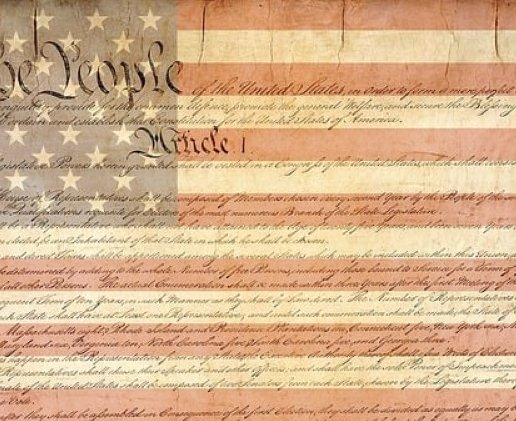 he People of the United States, in Order to form a more perfect
provide for the common defence, promote the general Welfare, and secure the Blessing
ordain and establish this Constitution for the United States of America.
Article I.
Legislative Powers herein granted shall be vested in a Congress of the United States, which shall consis
House of Representatives shall be composed of Members chosen every second Year by the People of the
Qualifications requisite for Electors of the most numerous Branch of the State Legislature.
of that State in which he shall be chosen.
determined by adding to the whole Number of free Persons, including those bound to Service for a Term of
all other Persons. The actual Enumeration shall be made within three Years after the first Meeting of
equent Term of ten Years, in such Manner as they shall by Law direct. The Number of Representatives
ch State shall have at Least one Representative; and until such enumeration shall be made, the State of
Massachusetts eight, Rhode Island and Providence Plantations one, Connecticut five, New York six,
aryland six, Virginia ten, North Carolina five, South Carolina five, and Georgia three.
happen in the Representation from any State, the Executive Authority
Representatives shall chuse their Speaker and other Officers; and shall have the sole Power of Impeachmen
nate of the United States shall be composed of two Senators from each State, chosen by the Legislature there
Vote.
after they shall be assembled in Consequence of the first Election, they shall be divided as equally as may